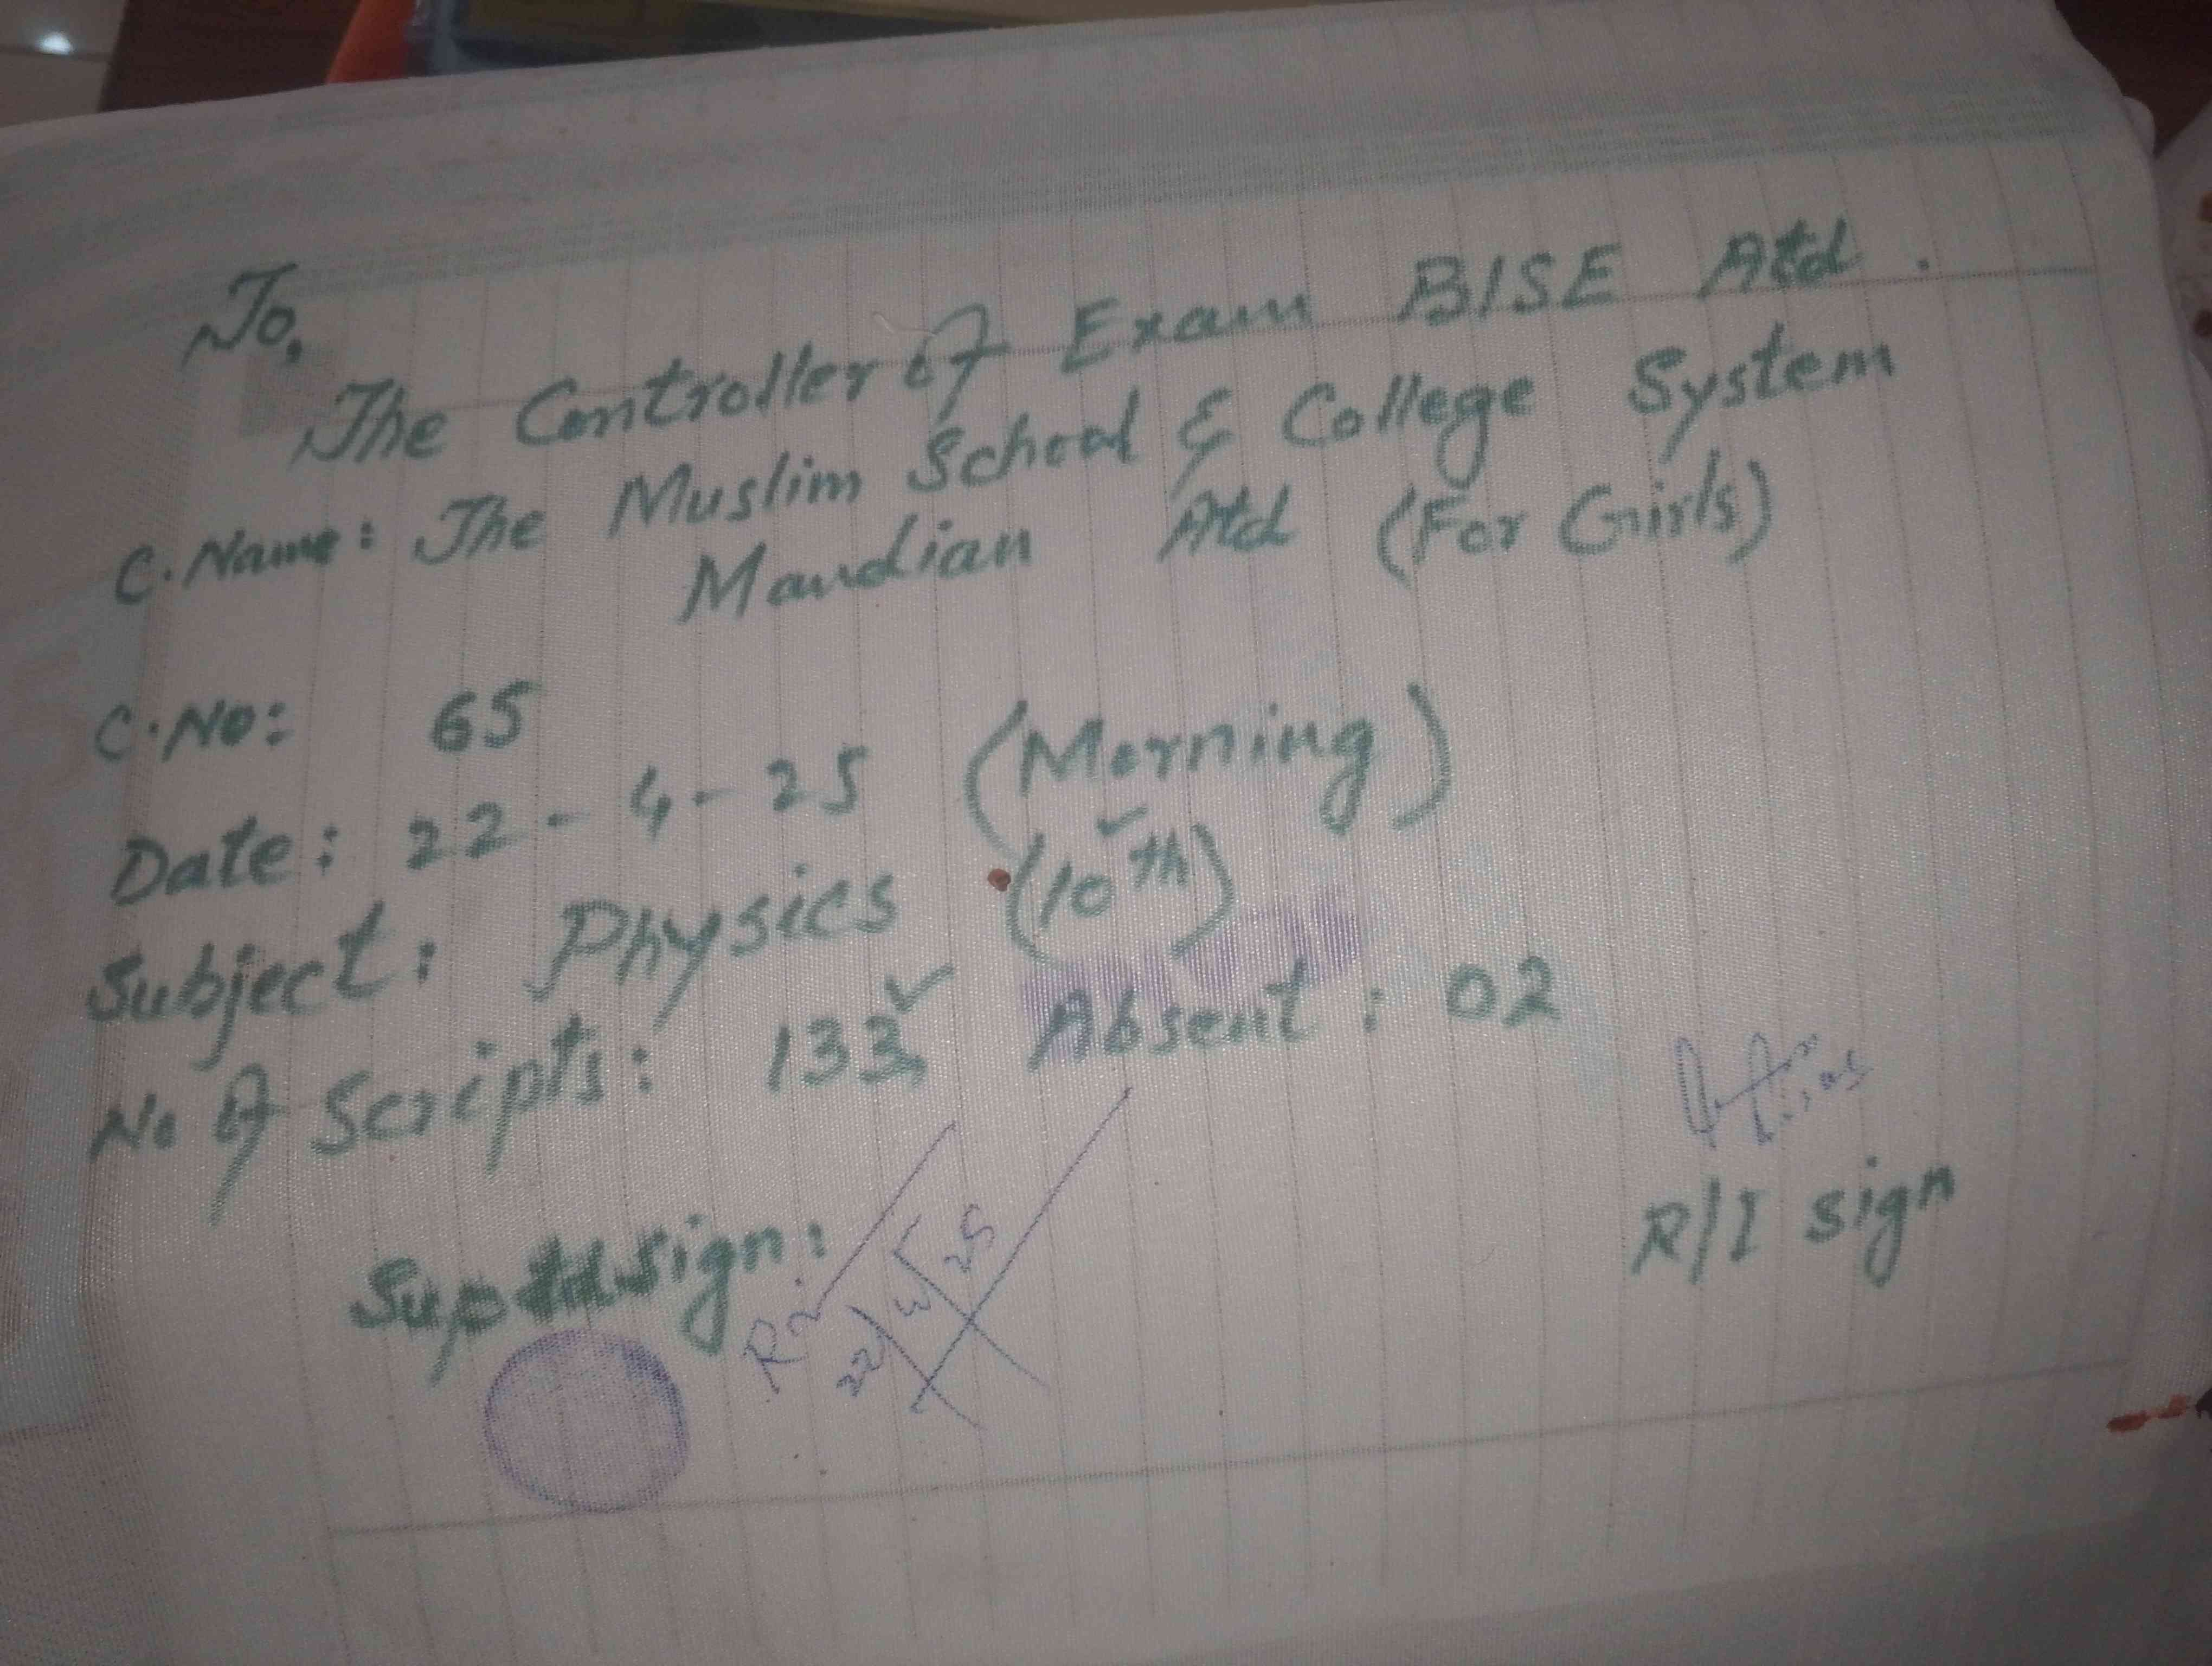 To,
The Controller of Exam BISE Atd.
C.Name: The Muslim School & College System
Mandian Atd (For Girls)
C.No: 65
Date: 22-4-25 (Morning)
Subject: Physics (10th)
No of Scripts: 133 Absent: 02
Suptd Sign:
22/4/25
R/I sign